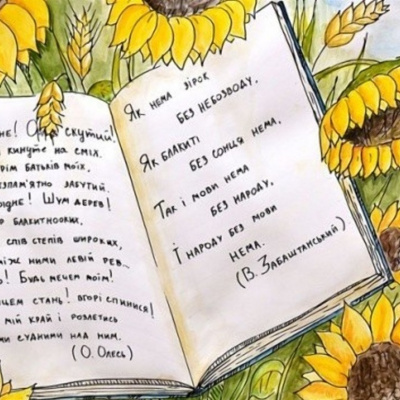 скутий!
кинуте на сміх.
батьків моїх,
забутий.
! Шум дерев!
блакитнооких,
спів степів широких,
ними левій рев...
! Будь мечем моїм!
стань! вгорі спинися!
мій край і розлетись
судними над ним.
(О. Олесь)
Як нема зірок
без небозводу,
Як блакиті
без сонця нема,
Так і мови нема
без народу,
І народу без мови
нема.
(В. Забаштанський)